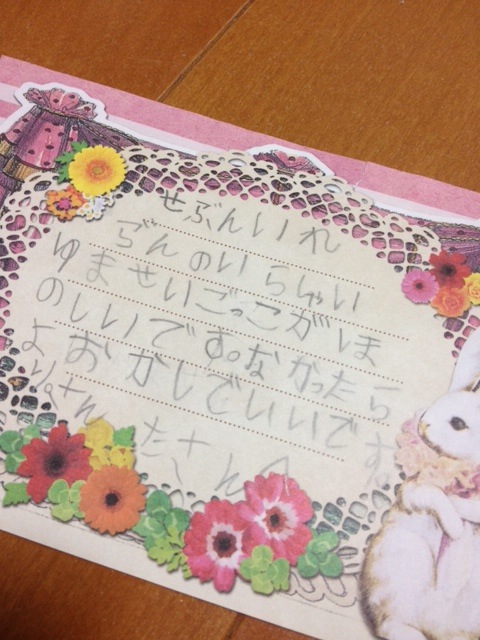 せぶんいれ
ぶんのいらゅい
ゆませいごっこがほ
のしいです。なかったら
よおかしでいいです
り。さんたさんへ